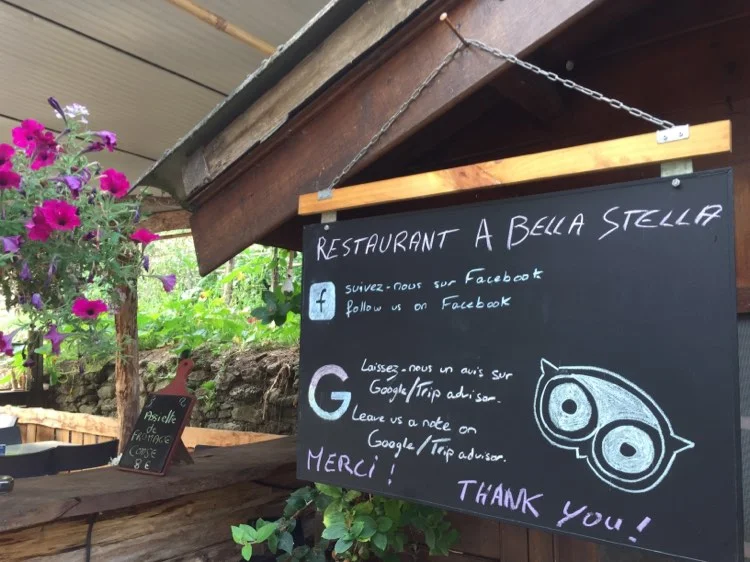 RESTAURANT A BELLA STELLA
f
suivez-nous sur Facebook
follow us on Facebook
G
Laissez-nous un avis sur
Google/Trip advisor.
Leave us a note on
Google/Trip advisor.
MERCI !
THANK YOU !
ASSIETTE
de
FROMAGE
CORSE
8 €